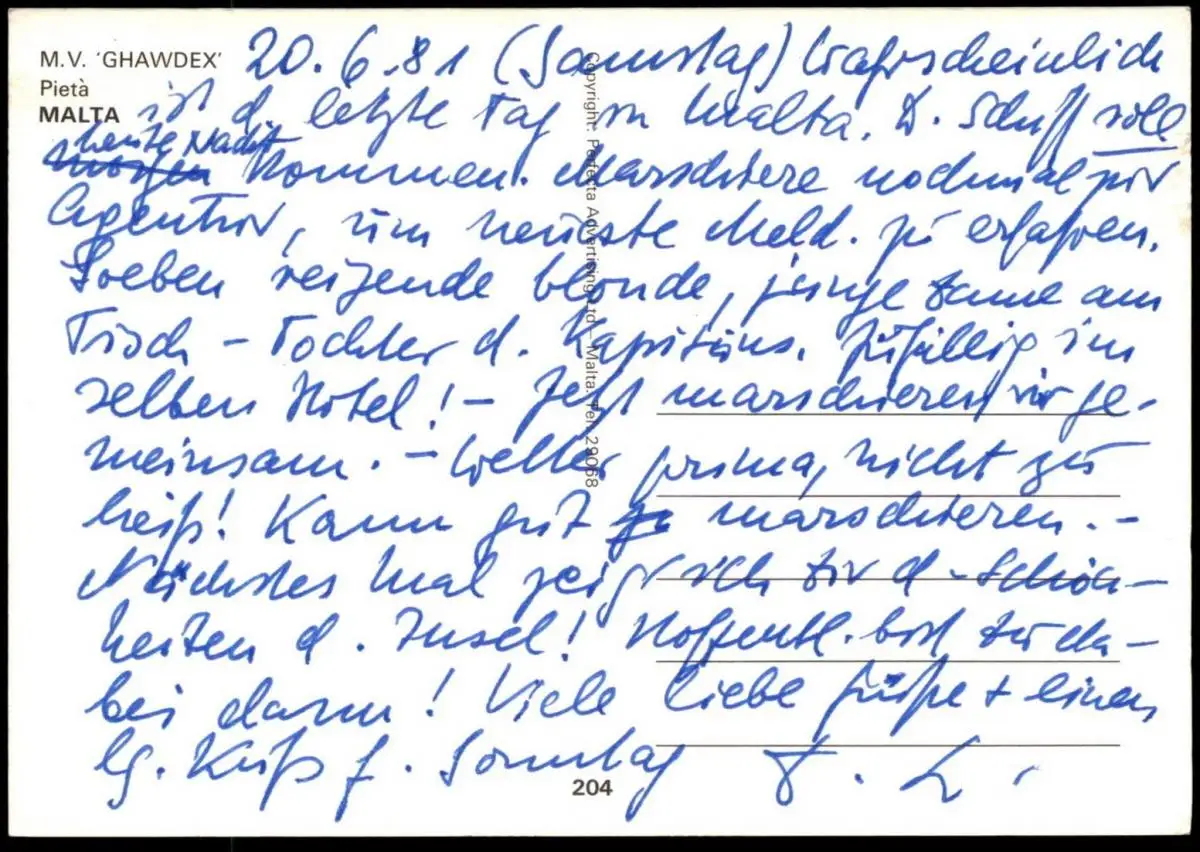 M.V. 'GHAWDEX'
Pietà
MALTA
20.6.81 (Samstag) Wahrscheinlich
ist d. letzte Tag in Malta. D. Schiff soll
morgen heute Nacht kommen. Marschiere nochmal zur
Agentur, um neueste Meld. zu erfahren.
Soeben reizende blonde, junge Dame am
Tisch – Tochter d. Kapitäns. Zufällig im
selben Hotel! – Jetzt marschieren wir ge-
meinsam. – Wetter prima, nicht zu
heiß! Kann gut zu marschieren. –
Nächstes Mal zeig ich Dir d. Schön-
heiten d. Insel! Hoffentl. bist Du da-
bei dann! Viele liebe Grüße + einen
lg. Kuß f. Sonntag
Copyright: Perfecta Advertising Ltd. – Malta. Tel: 29068
204